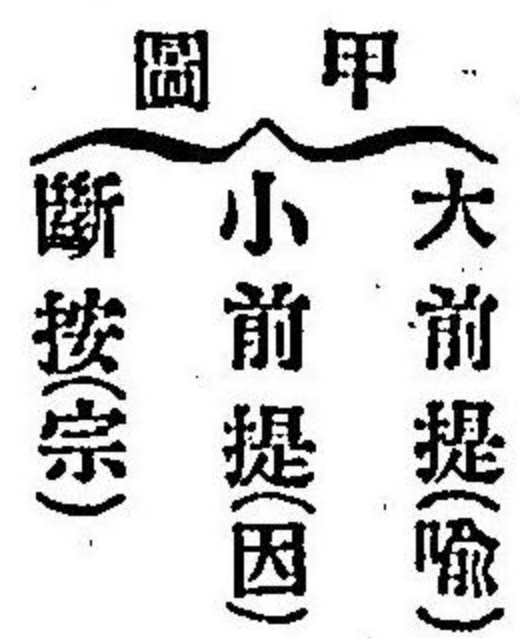 甲圖
大前提(喻)
小前提(因)
斷按(宗)